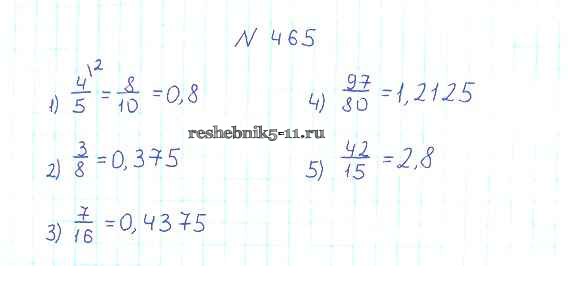 N 465
1) 4/5 \2 = 8/10 = 0,8
2) 3/8 = 0,375
3) 7/16 = 0,4375
4) 97/80 = 1,2125
5) 42/15 = 2,8
reshebnik5-11.ru